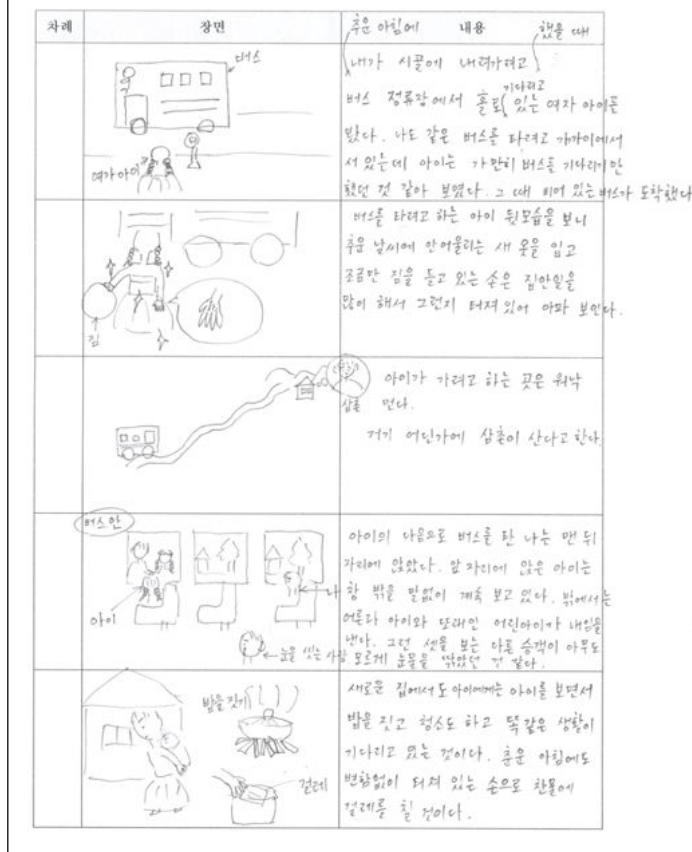 차례 장면 내용
추운 아침에 했을 때
버스
여자 아이
내가 시골에 내려가려고
기다리고
버스 정류장에서 홀로 있는 여자 아이를
봤다. 나도 같은 버스를 타려고 가까이에서
서 있는데 아이는 가만히 버스를 기다리기만
했던 것 같아 보였다. 그 때 비어 있는 버스가 도착했다
짐
버스를 타려고 하는 아이 뒷모습을 보니
추운 날씨에 안어울리는 새 옷을 입고
조금만 짐을 들고 있는 손은 집안일을
많이 해서 그런지 터져있어 아파 보인다.
삼촌
아이가 가려고 하는 곳은 워낙
먼다.
저기 어딘가에 삼촌이 산다고 한다.
버스 안
아이
나
눈을 씻는 사람
아이의 다음으로 버스를 탄 나는 맨 뒤
자리에 앉았다. 앞 자리에 앉은 아이는
창 밖을 말없이 계속 보고 있다. 밖에서는
어른과 아이와 또래인 어린아이가 내임을
냈다. 그런 셋을 보는 다른 승객이 아무도
모르게 눈물을 닦았던 것 같다.
밥을 짓기
걸레
새로운 집에서도 아이에게는 아이를 보면서
밥을 짓고 청소도 하고 똑같은 생활이
기다리고 있는 것이다. 춘운 아침에도
변함없이 터져 있는 손으로 찬물에
걸레를 칠 것이다.